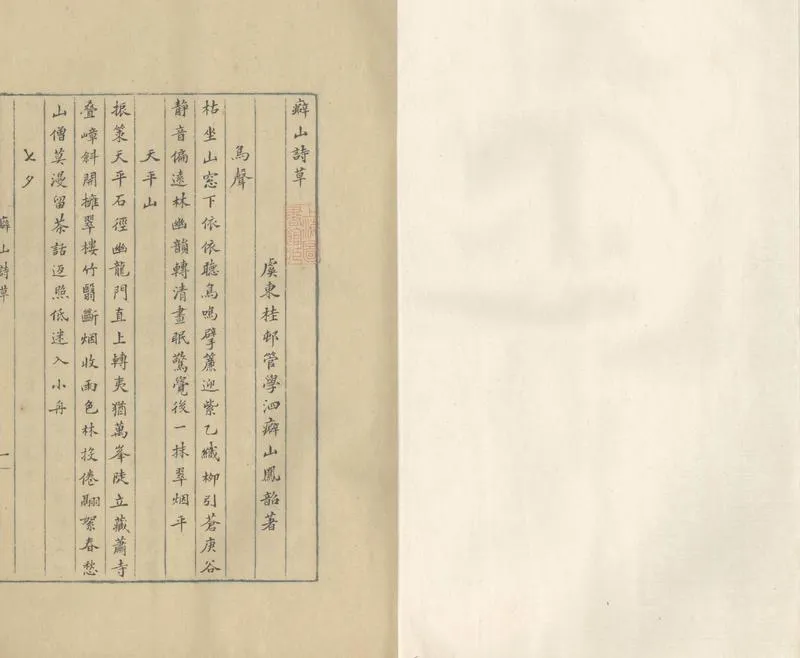 癖山詩草
虞東桂邨管學泗癖山鳳韶著
鳥聲
枯坐山窓下依依聽鳥鳴擘簾迎紫乙纖柳引蒼庚谷
静音偏遠林幽韻轉清晝眠驚覺後一抹翠烟平
天平山
振策天平石徑幽龍門直上轉夷猶萬峯陡立藏蕭寺
叠嶂斜開擁翠樓竹翳斷烟收雨色林投倦翮絮春愁
山僧莫漫留茶話返照低迷入小舟
七夕
癖山詩草
一